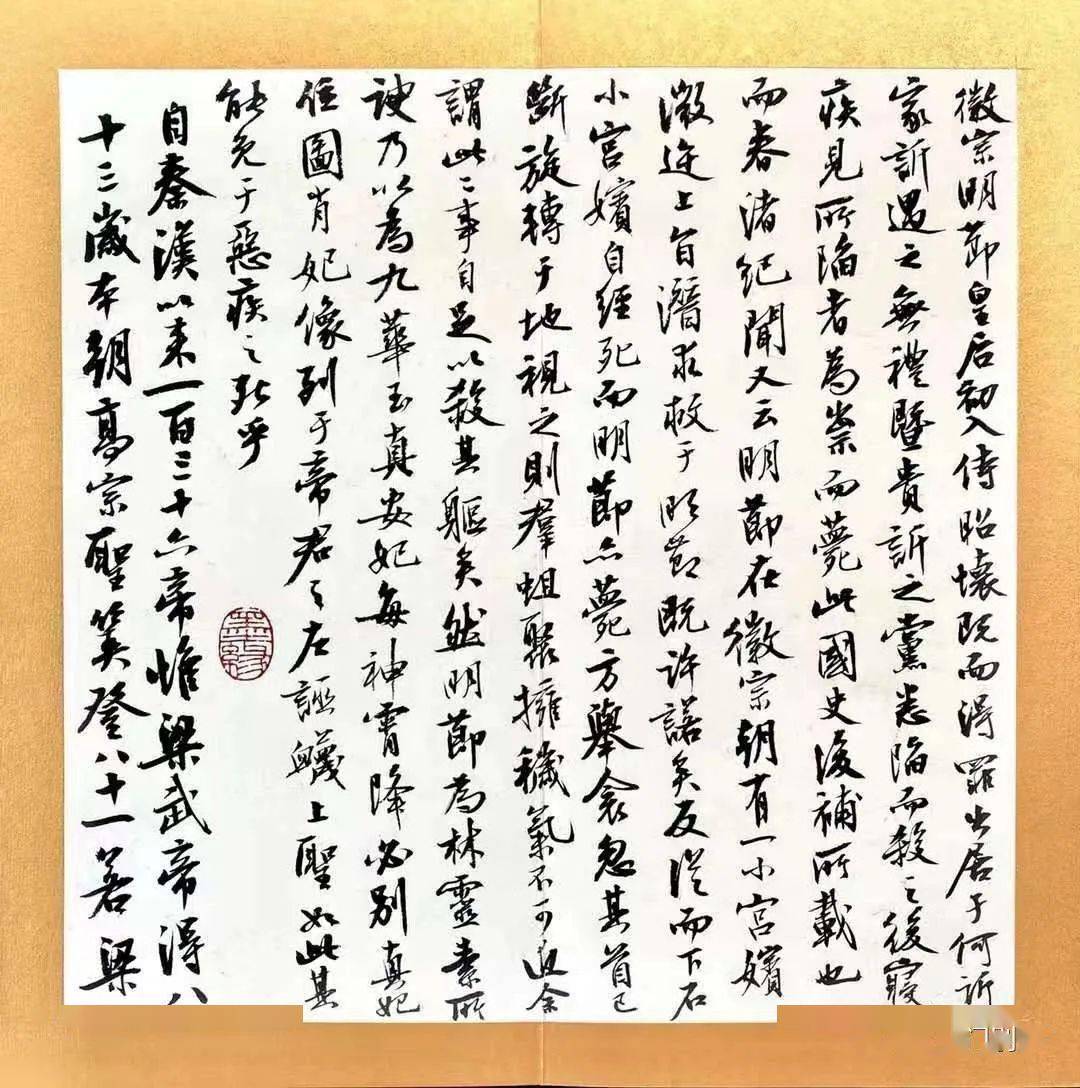 徽宗明節皇后初入侍昭懷既而得罪出居于何訢
家訢遇之無禮暨貴訢之黨悉陷而殺之後寢
疾見所陷者為祟而薨此國史後補所載也
而春渚紀聞又云明節在徽宗朝有一小宮嬪
微迕上旨潛求救于明節既許諾矣反從而下石
小宮嬪自經死而明節亦薨方舉衾忽其首已
斷旋轉于地視之則羣蛆聚擁穢氣不可近余
謂此二事自足以殺其軀矣然明節為林靈素所
諛乃以為九華玉真安妃每神霄降必別真妃
位圖肖妃像列于帝君之左誣衊上聖如此其
能免于惡疾之死乎
自秦漢以來一百三十六帝惟梁武帝得八
十三歲本朝高宗聖筭登八十一若梁